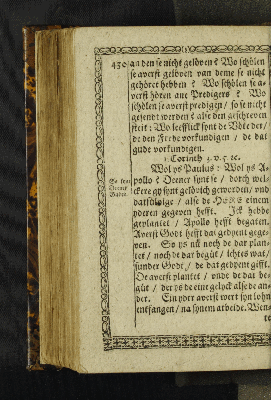 430
an den se nicht gelöven? Wo schölen
se averst gelöven van deme se nicht
gehöret hebben? Wo schölen se a-
verst hören ane Predigers? Wo
schölen se averst predigen / so se nicht
gesendt werden? alse den geschreven
steit: Wo leefflick synt de Vöte der /
de den Frede vorkundigen / de dat
gude vorkundigen.
1. Corinth. 3. v. 5. ꝛc.
Wol ys Paulus: Wol ys A-
pollo? Dener synt se / dorch wel-
ckere gy synt gelövich geworden / und
datsülvige / alse de HERE einem
yderen gegeven hefft. Ick hebbe
geplantet / Apollo hefft begaten,
Averst Godt hefft dat gedyent gege-
ven. So ys nu noch de dar plan-
tet / noch de dar begüt / ichtes wat /
sunder Godt / de dat gedyent gifft.
De averst plantet / unde de dat be-
güt / der ys de eine gelyck alse de an-
der. Ein yder averst wert syn lohn
entfangen / na synem arbeide. Wen-
te